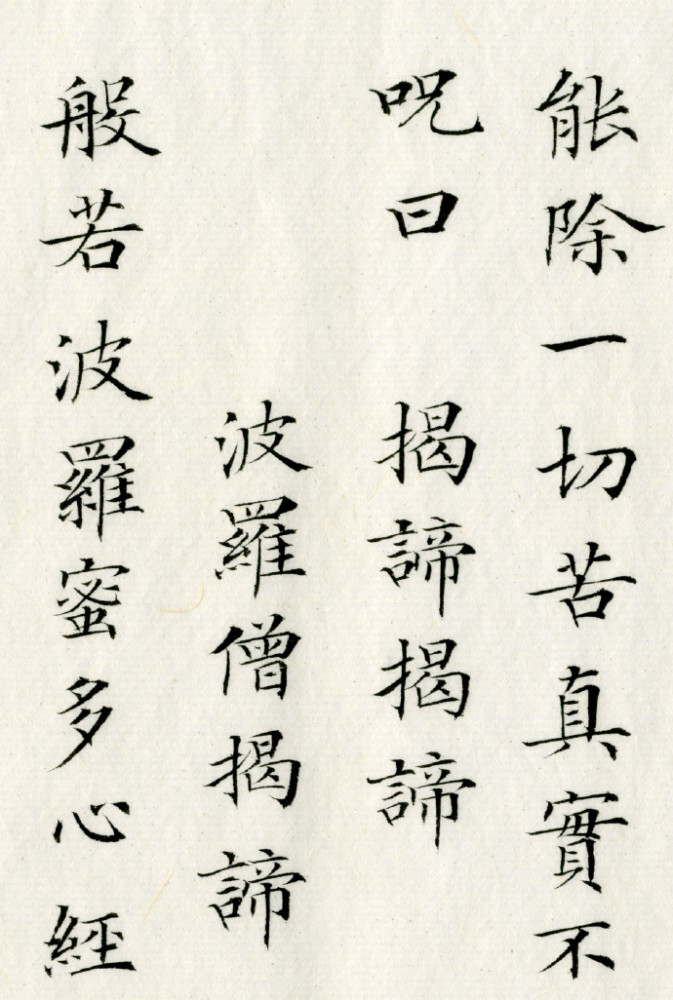 能除一切苦真實不
呪曰 揭諦揭諦
波羅僧揭諦
般若波羅蜜多心經